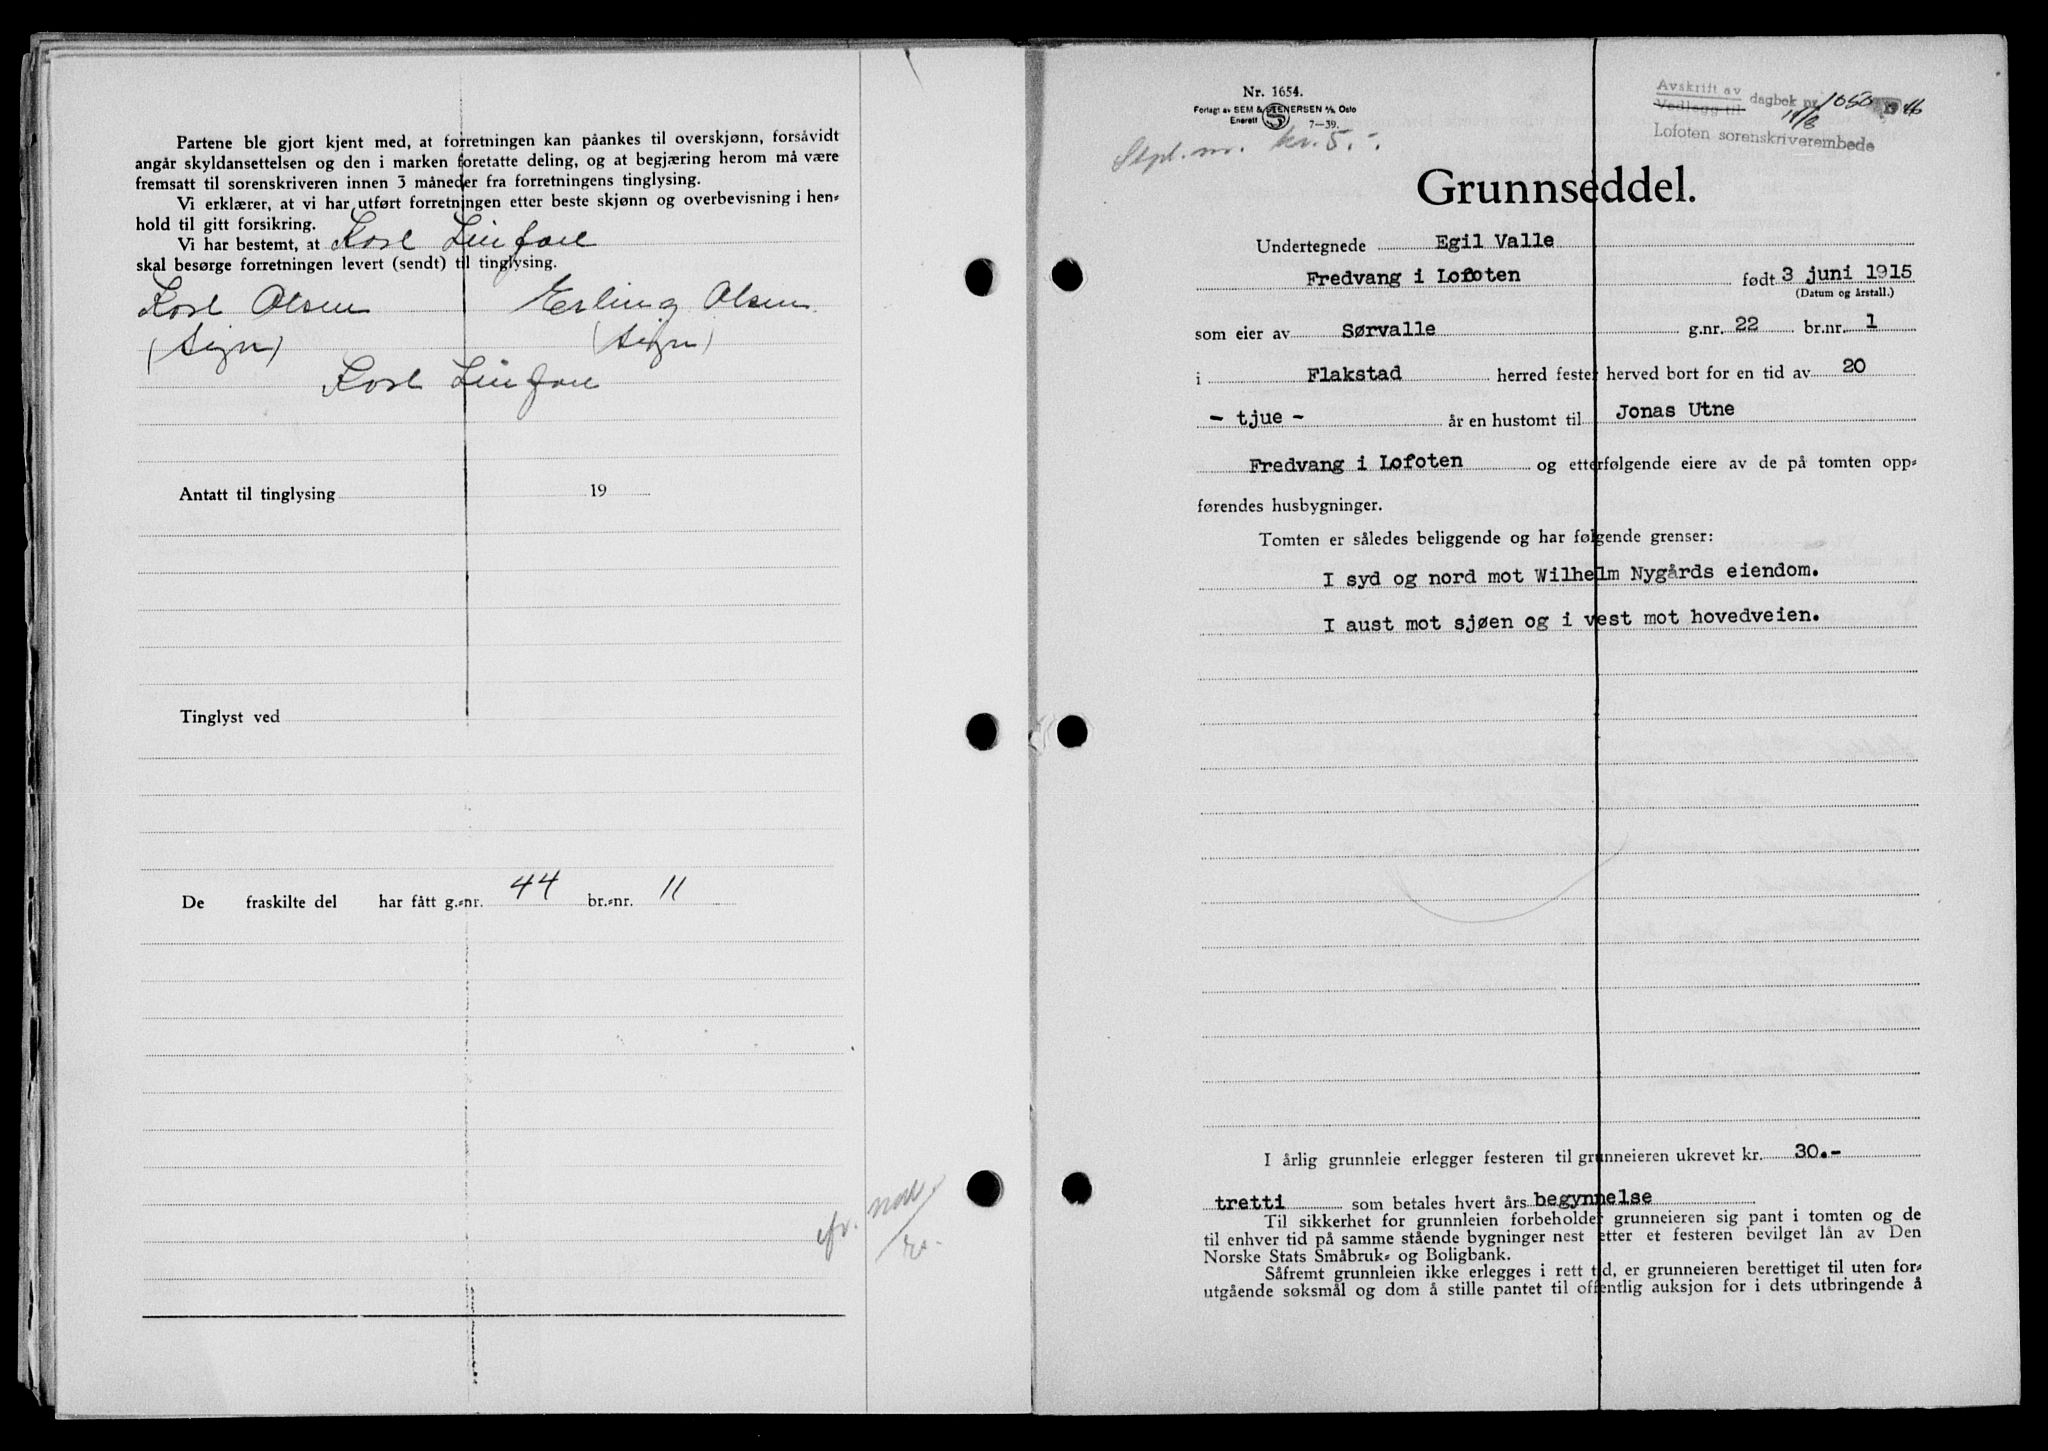 Partene ble gjort kjent med, at forretningen kan påankes til overskjønn, forsåvidt
angår skyldansettelsen og den i marken foretatte deling, og at begjæring herom må være
fremsatt til sorenskriveren innen 3 måneder fra forretningens tinglysing.
Vi erklærer, at vi har utført forretningen etter beste skjønn og overbevisning i hen-
hold til gitt forsikring.
Vi har bestemt, at Karl
skal besørge forretningen levert (sendt) til tinglysing.
Karl Olsen Erling Olsen
(sign) (sign)
Karl
Antatt til tinglysing 19
Tinglyst ved
De fraskilte del har fått g.-nr. 44 br.-nr. 11
Nr. 1654.
Forlagt av SEM & STENERSEN A/S, Oslo
Enerett S 7—39.
Stpl. m. kr. 5.-
Avskrift av
Vedlegg til dagbok nr. 1050 1946
Lofoten sorenskriverembede
Grunnseddel.
Undertegnede Egil Valle
Fredvang i Lofoten født 3 juni 1915
(Datum og årstall.)
som eier av Sørvalle g.nr. 22 br.nr. 1
i Flakstad herred fester herved bort for en tid av 20
- tjue - år en hustomt til Jonas Utne
Fredvang i Lofoten og etterfølgende eiere av de på tomten opp-
førendes husbygninger.
Tomten er således beliggende og har følgende grenser:
I syd og nord mot Wilhelm Nygårds eiendom.
I aust mot sjøen og i vest mot hovedveien.
I årlig grunnleie erlegger festeren til grunneieren ukrevet kr. 30.-
tretti som betales hvert års begynnelse
Til sikkerhet for grunnleien forbeholder grunneieren sig pant i tomten og de
til enhver tid på samme stående bygninger nest etter et festeren bevilget lån av Den
Norske Stats Småbruk- og Boligbank.
Såfremt grunnleien ikke erlegges i rett tid, er grunneieren berettiget til uten for-
utgående søksmål og dom å stille pantet til offentlig auksjon for i dets utbringende å